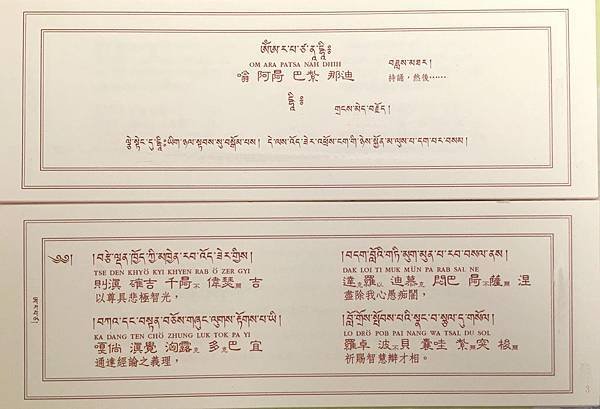 ཨོཾ་ཨ་ར་པ་ཙ་ན་དྷཱིཿ
OM ARA PATSA NAH DHIH
嗡 阿 巴 紮 那 迪
བཟླས་མཐར།
持誦，然後……
དྷཱིཿ
གྲངས་མེད་བརྗོད།
ལྕེ་སྟེང་དུ་དྷཱིཿཡིག་ཉལ་སྟབས་སུ་བསྒོམ་པས། དེ་ལས་འོད་ཟེར་འཕྲོས་ངག་གི་ཉེས་སྐྱོན་མ་ལུས་པ་དག་པར་བསམ།
༄༅། །བརྩེ་ལྡན་ཁྱོད་ཀྱི་མཁྱེན་རབ་འོད་ཟེར་གྱིས།
TSE DEN KHYÖ KYI KHYEN RAB Ö ZER GYI
則滇 吉 千 不 偉瑟爾 吉
以尊具悲極智光，
།བདག་བློའི་གཏི་མུག་མུན་པ་རབ་བསལ་ནས།
DAK LOI TI MUK MÜN PA RAB SAL NE
達克羅以 迪慕克 悶巴 不薩爾 涅
盡除我心愚痴闇，
།བཀའ་དང་བསྟན་བཅོས་གཞུང་ལུགས་རྟོགས་པ་ཡི།
KA DANG TEN CHÖ ZHUNG LUK TOK PA YI
嘎倘 滇覺 洶露克 多克巴 宜
通達經論之義理，
།བློ་གྲོས་སྤོབས་པའི་སྣང་བ་སྩལ་དུ་གསོལ།
LO DRÖ POB PAI NANG WA TSAL DU SOL
羅卓 波不貝 囊哇 紮爾突 梭爾
祈賜智慧辯才相。
3